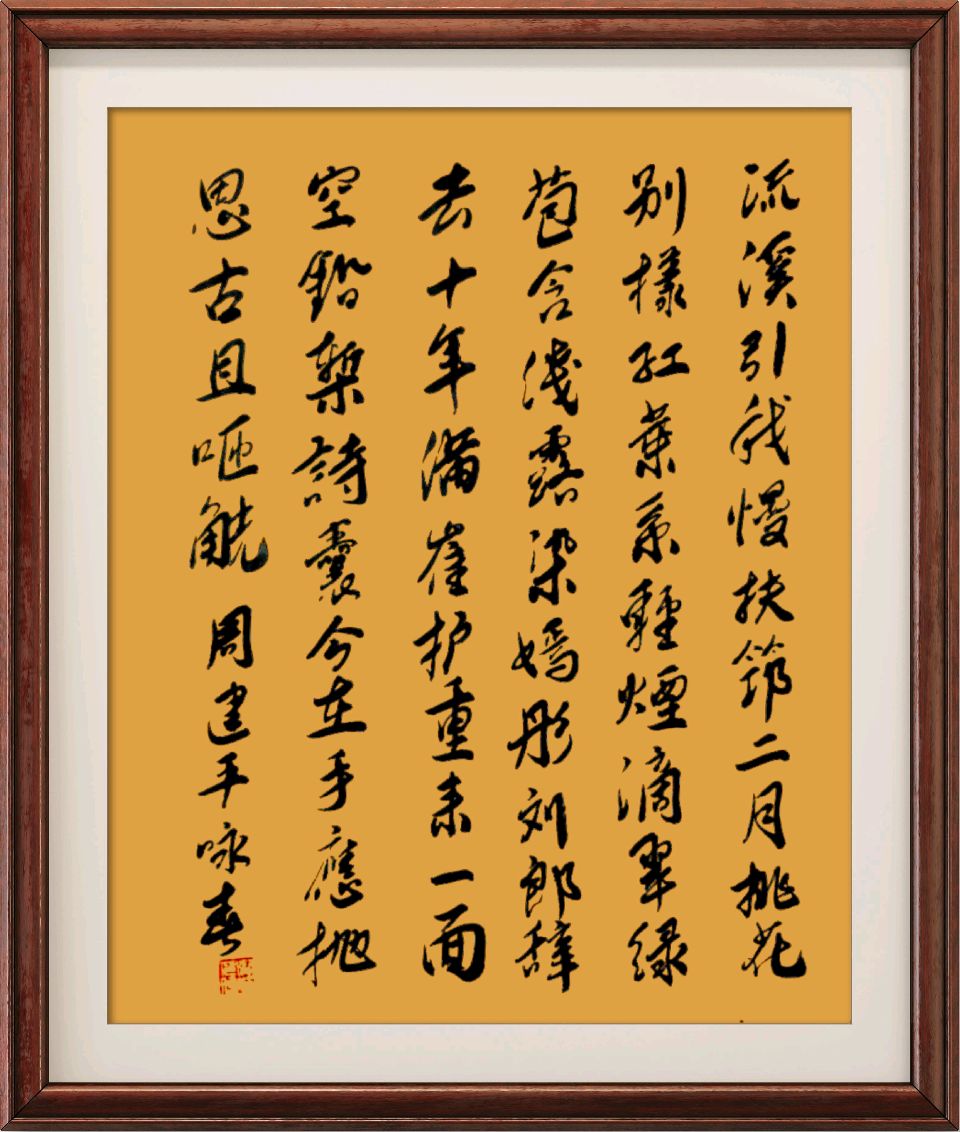 流溪引我慢扶筇二月桃花
别樣红葉系輕煙滴翠绿
苞含浅露染嫣彤刘郎辞
去十年满崔护重来一面
空鉛槧詩囊今在手應抛
思古且咂觥 周建平咏春